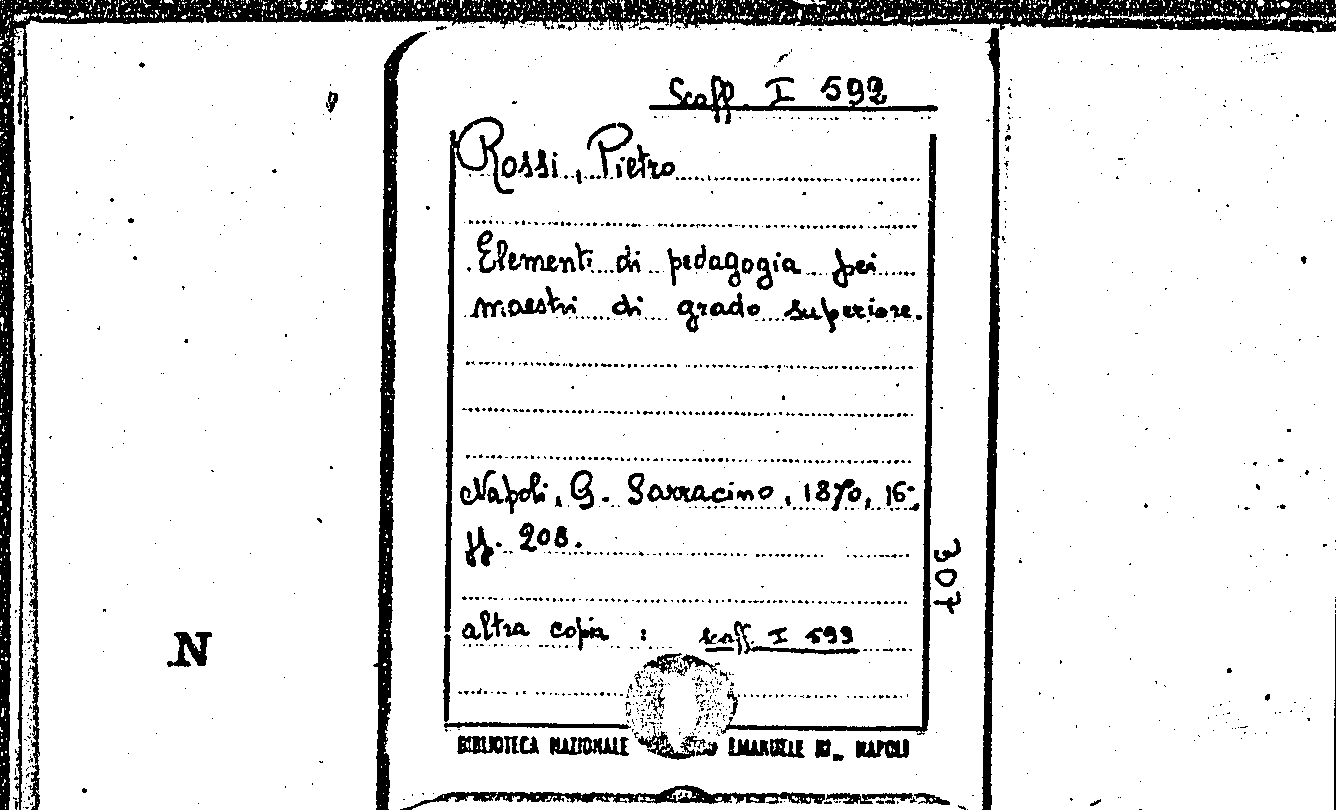 Scaff. I 592
Rossi, Pietro
Elementi di pedagogia pei
maestri di grado superiore.
Napoli, G. Sarracino, 1870, 16°,
pp. 208.
307
altra copia : scaff. I 593
N
BIBLIOTECA NAZIONALE EMANUELE III„ NAPOLI